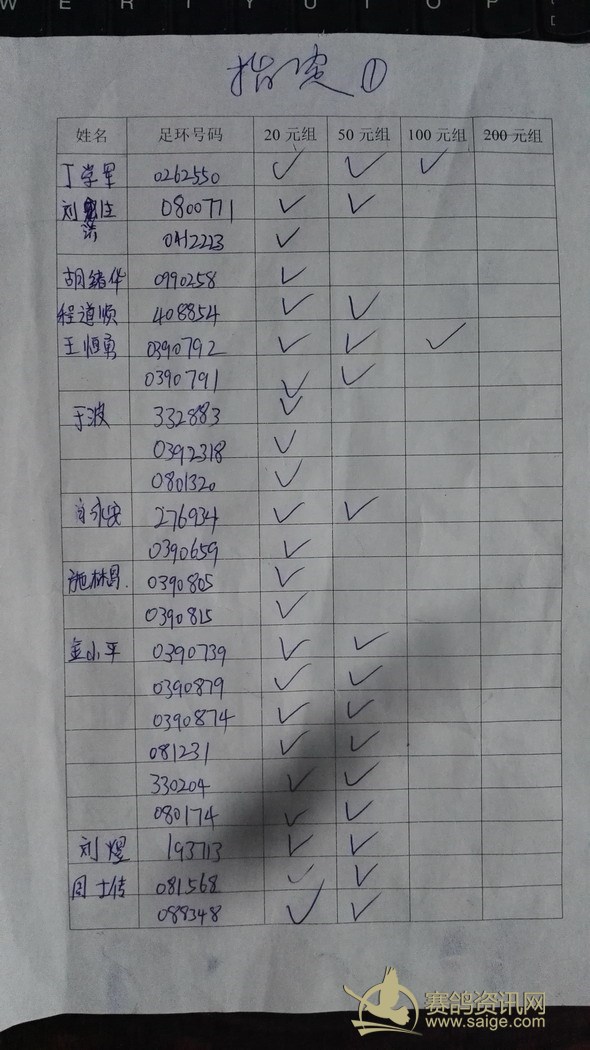 W E R T Y U I O P
指定①
姓名 足环号码 20元组 50元组 100元组 200元组
丁学军 0262550 ✓ ✓ ✓
刘 0800771 ✓ ✓
0412223 ✓
胡绪华 0990258 ✓
程道顺 408854 ✓ ✓
王恒勇 0390792 ✓ ✓ ✓
0390791 ✓ ✓
于波 332883 ✓
0392318 ✓
0801320 ✓
永安 276934 ✓ ✓
0390659 ✓
施林昌. 0390805 ✓
0390815 ✓
金小平 0390739 ✓ ✓
0390879 ✓ ✓
0390874 ✓ ✓
081231 ✓ ✓
330204 ✓ ✓
080174 ✓ ✓
刘煜 193713 ✓ ✓
士传 081568 ✓ ✓
088348 ✓ ✓
赛鸽资讯网
www.saige.com